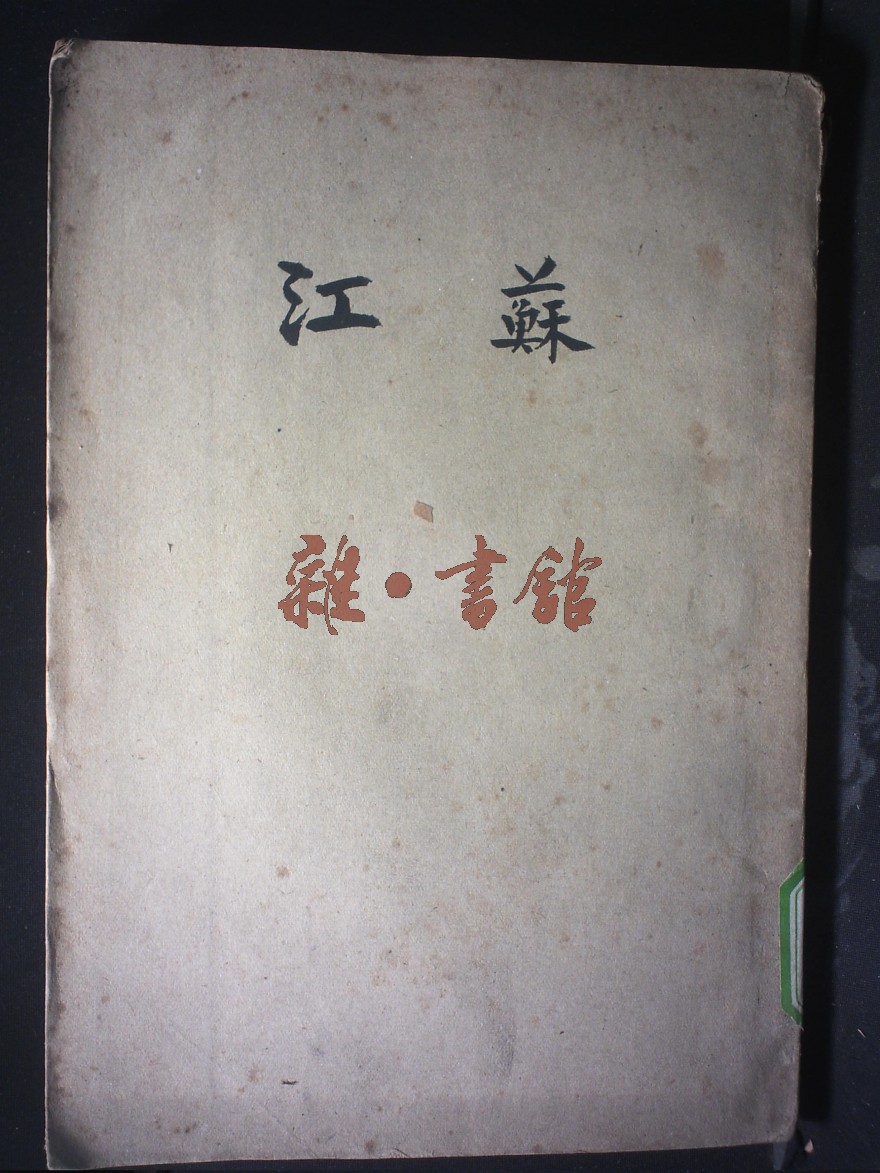 江蘇
雜•書館